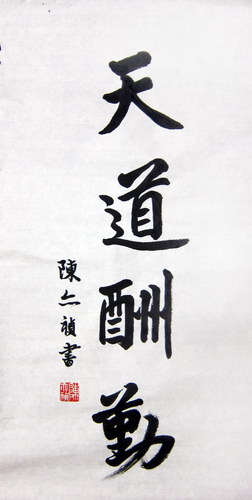 天道酬勤
陳亦禎書